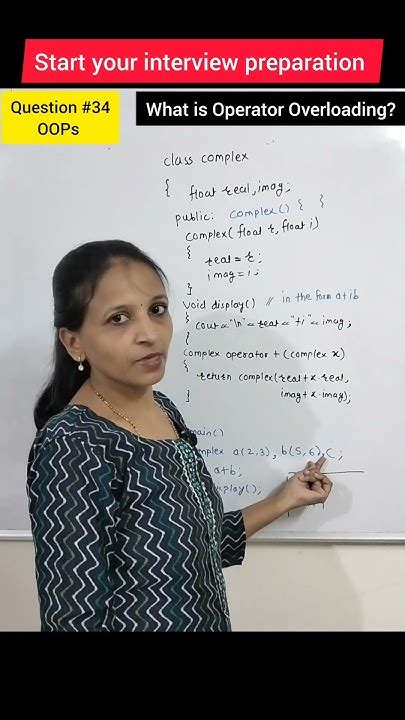 Start your interview preparation
Question #34
OOPs
What is Operator Overloading?
class complex
{ float real, imag;
public: complex() { }
complex( float r, float i)
{
real = r;
imag = i;
}
void display() // in the form a+ib
{ cout<<"\n"<<real<<"+i"<<imag;
}
complex operator + (complex x)
{
return complex(real+x.real,
imag+x.imag);
}
main()
mplex a(2,3), b(5,6), C;
a+b;
isplay();